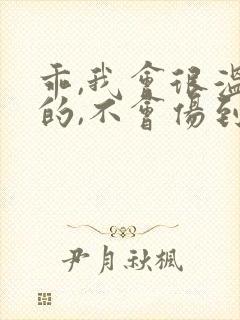 乖,我會很溫
的,不會傷到
尹月秋楓